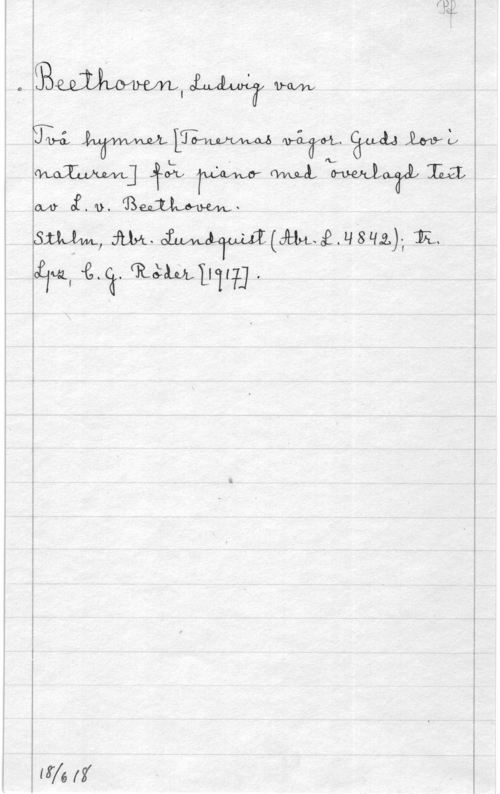 Pf
Beethoven, Ludwig van
Två hymner [Tonernas vågor. Guds lov i
naturen] för piano med överlagd text
av L. v. Beethoven.
Sthlm, Abr. Lundquist (Abr. L. 4842); tr.
Lpz, C. G. Röder [1917].
18/6 18